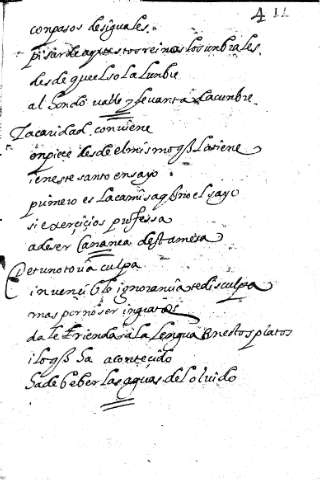 411
con pasos desiguales.
pisar de aquestos reinos los unbrales.
desde que el sol alunbre
al hondo valle y levanta da cunbre
La caridad conviene
enpiece desde el mismo q la tiene
i en este santo ensayo.
primero es la camisa q no el sayo
si exerçiçios professa
a de ser Cananea de su mesa
Per una tova culpa
invençible ignorançia te disculpa
mas por no ser ingratos
dale Rienda a la lengua en estos platos
i lo q ha aconteçido
ha de beber las aguas del olvido